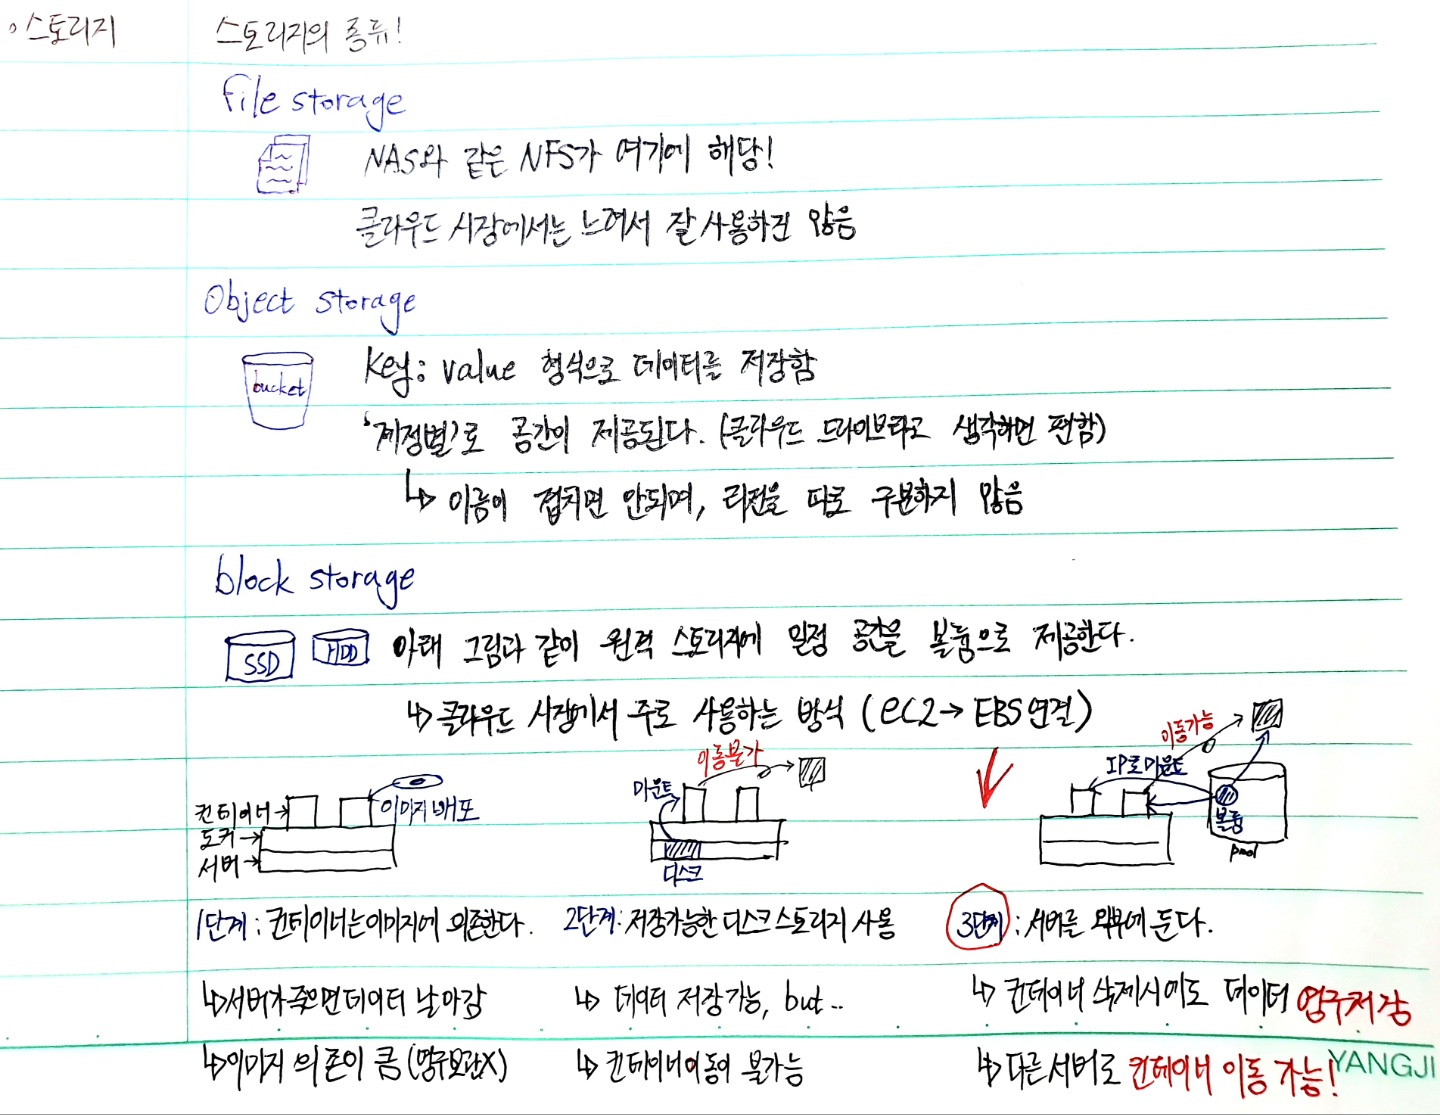 •스토리지
스토리지의 종류!
file storage
NAS와 같은 NFS가 여기에 해당!
클라우드 시장에서는 느려서 잘 사용하진 않음
Object storage
bucket
Key: value 형식으로 데이터를 저장함
'계정별'로 공간이 제공된다. (클라우드 드라이브라고 생각하면 편함)
↳ 이름이 겹치면 안되며, 리전을 따로 구분하지 않음
block storage
SSD HDD 아래 그림과 같이 원격 스토리지에 일정 공간을 볼륨으로 제공한다.
↳ 클라우드 시장에서 주로 사용하는 방식 (EC2→ EBS 연결)
컨테이너→
도커→
서버→
이미지 배포
이동불가
마운트
디스크
이동가능
IP로 마운트
볼륨
pool
1단계 : 컨테이너는 이미지에 의존한다.
↳서버가 죽으면 데이터 날아감
↳이미지 의존이 큼 (영구보관X)
2단계: 저장가능한 디스크 스토리지 사용
↳ 데이터 저장가능, but..
↳ 컨테이너 이동이 불가능
3단계 : 서버를 외부에 둔다.
↳ 컨테이너 삭제시에도 데이터 영구저장
↳ 다른 서버로 컨테이너 이동 가능!
YANGJI